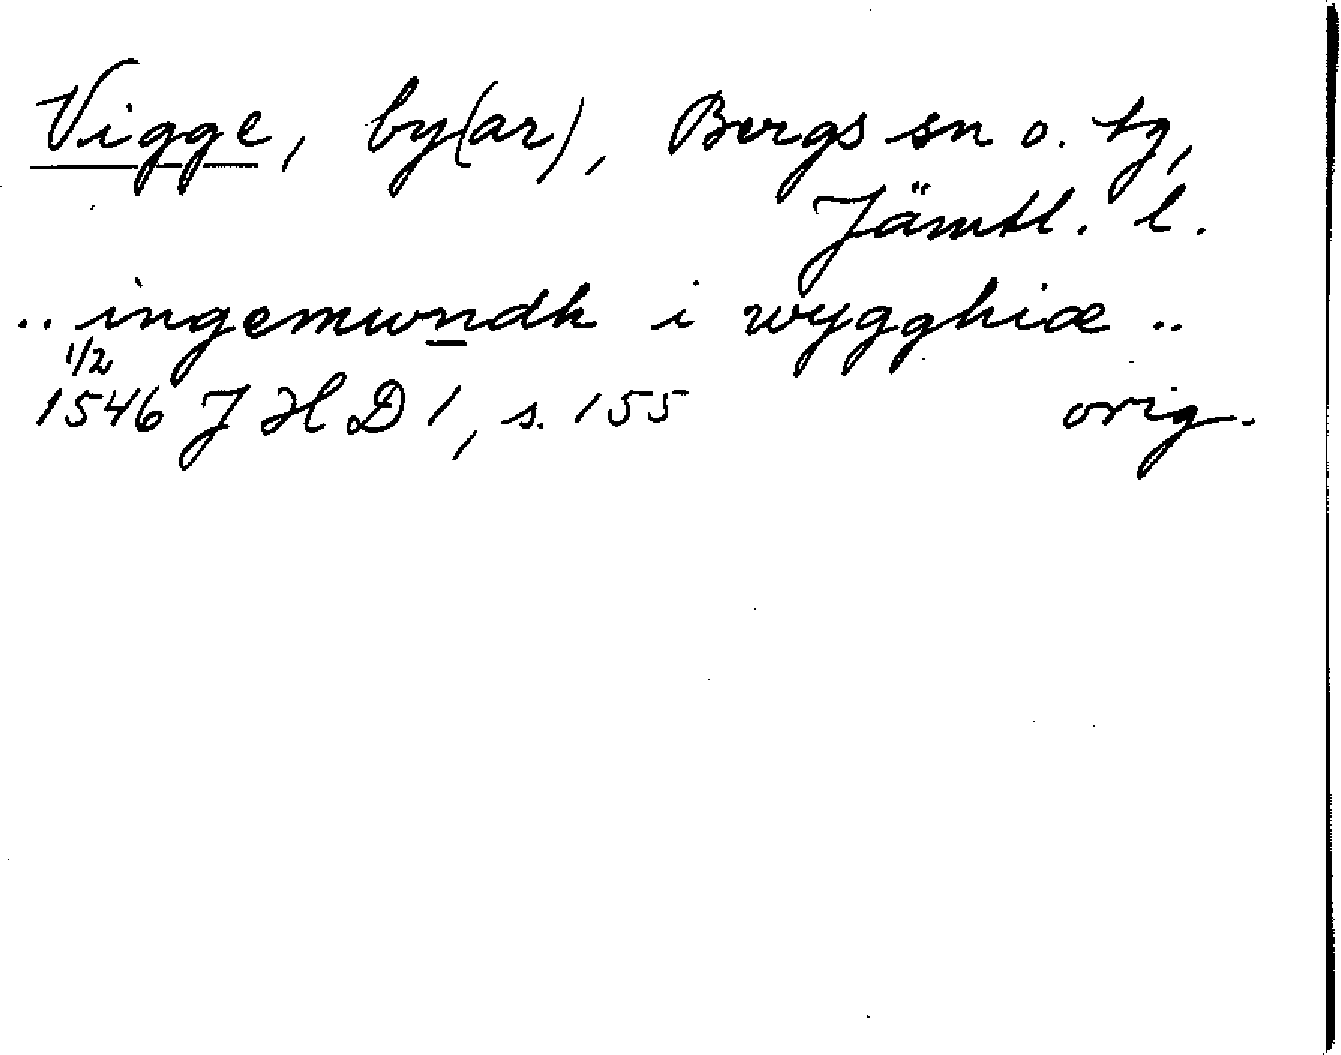 Vigge, by(ar), Bergs sn o. tg,
Jämtl. l.
.. ingemwndh i wygghiæ ..
1/2
1546 J H D 1, s. 155 orig.